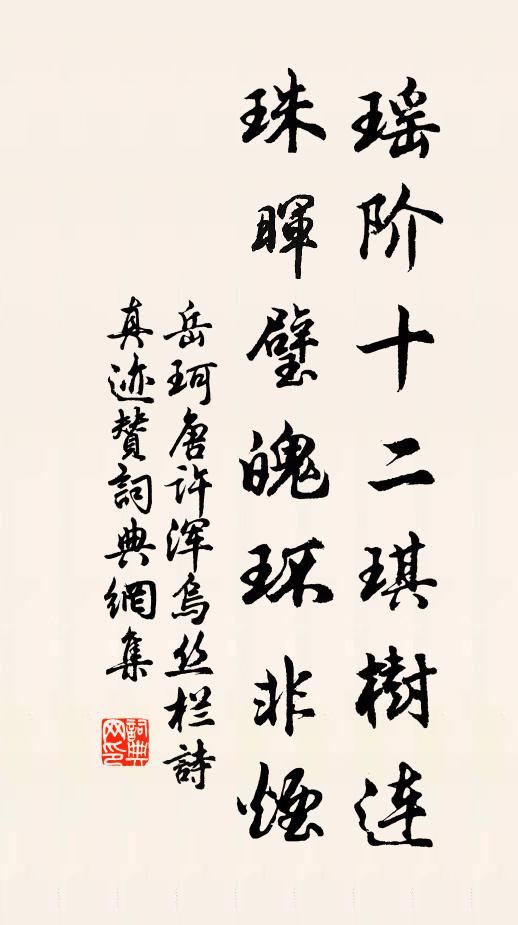 瑶阶十二琪树连
珠暉璧魄环非煙
岳珂唐许浑乌丝栏詩
真迹赞詞典網集
詞典網印